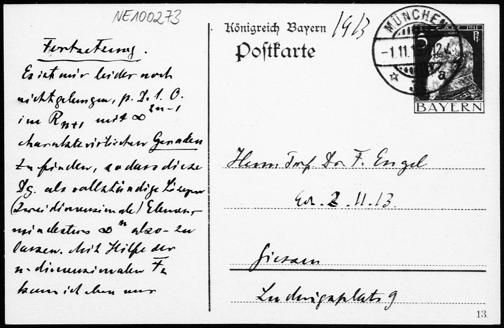 NE100273
Königreich Bayern 1913
Postkarte
MÜNCHEN
-1.11.1
5 Pf
BAYERN
Fortsetzung.
Es ist mir leider noch
nicht gelungen, p. D. 1. O.
im R n+1 mit ∞ 2n-1
charakteristischen Geraden
zu finden, so dass diese
Dg. als vollständige Lösungen
(zwei dimensionale) Element
mindestens ∞ n also zu
lassen. Mit Hilfe der
n-dimensionalen
kann ich eben nur
Herrn Prof. Dr. F. Engel
2.11.13.
Giessen
Ludwigsplatz 9
13